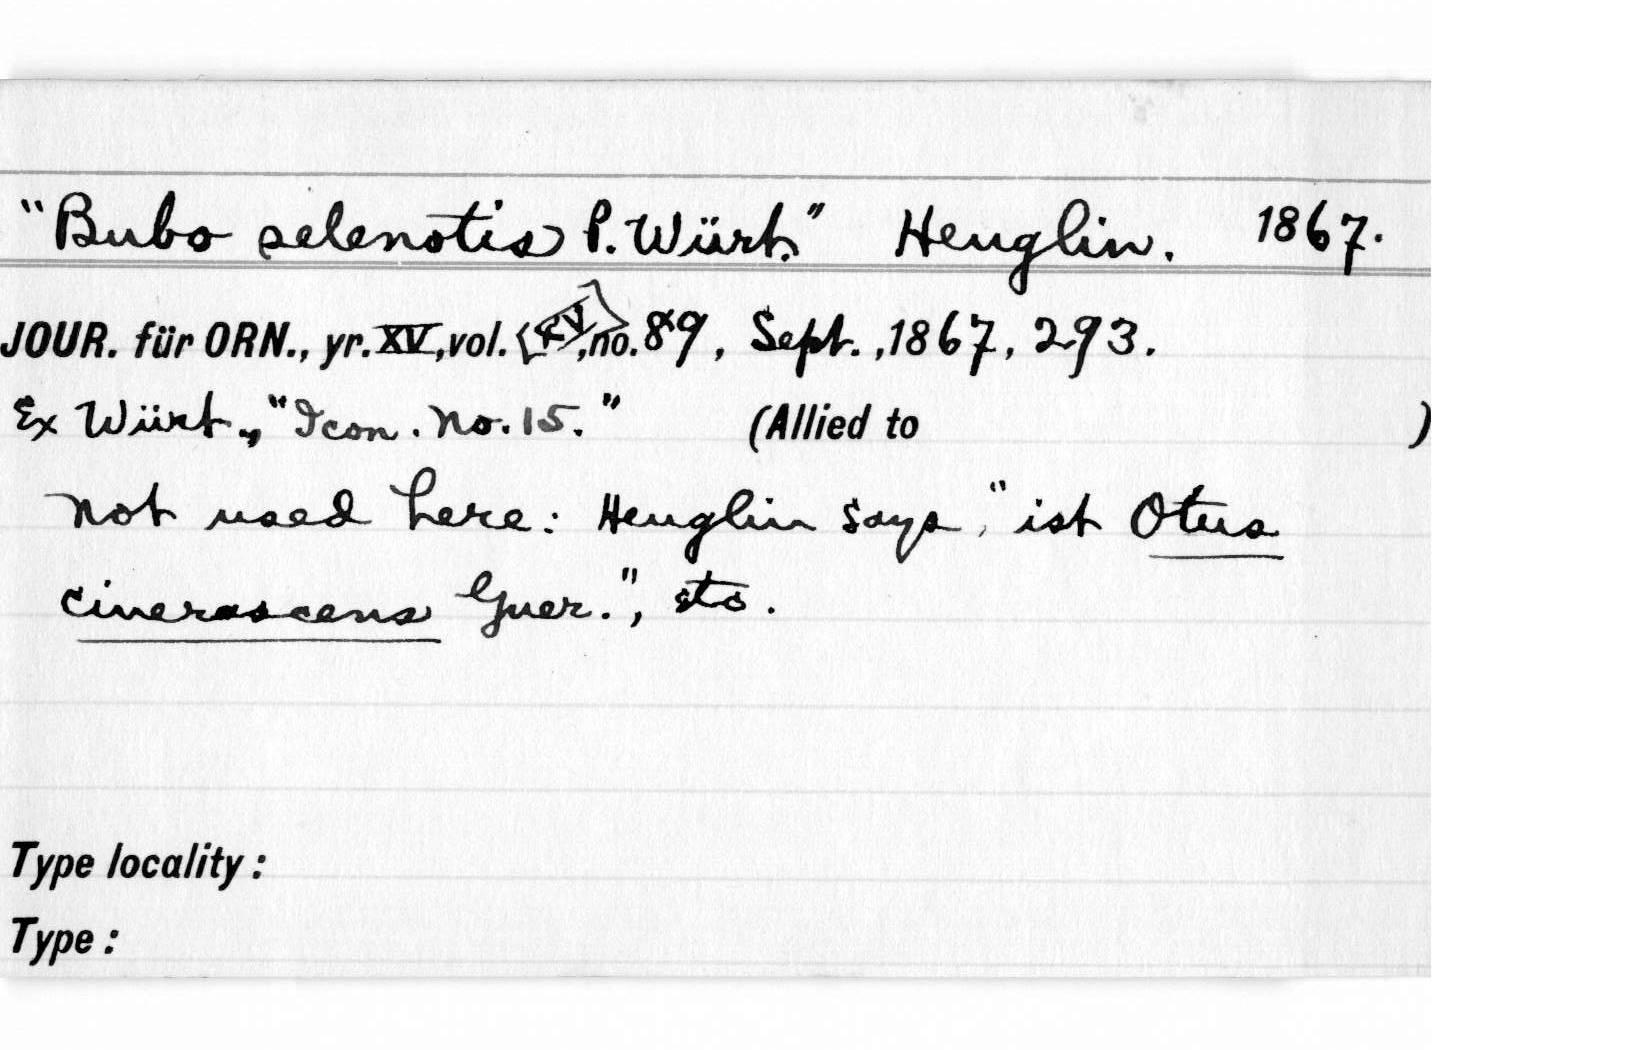 "Bubo selenotis P. Würt." Heuglin. 1867.
JOUR. für ORN., yr. XV, vol. <XV>, no. 89, Sept., 1867, 293.
Ex Würt., "Icon. No. 15." (Allied to )
Not used here: Heuglin says, "ist Otus
cinerascens Guer.", etc.
Type locality:
Type: